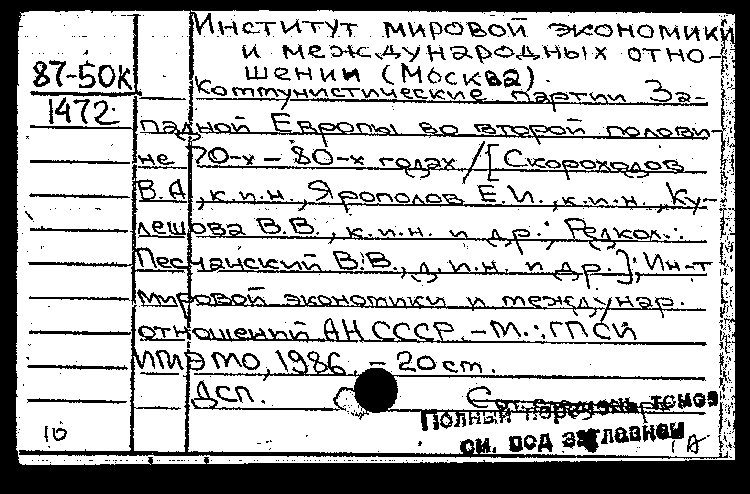 Институт мировой экономики
и международных отно-
шении (Москва).
87-50К
1472
Коммунистические партии За-
падной Европы во второй полови-
не 70-х – 80-х годах / [Скороходов
В.А., к.п.н., Ярополов Е.И., к.п.н., Ку-
лешова В.В., к.и.н. и др.; Редкол.:
Песчанский В.В., д.и.н. и др.]; Ин-т
мировой экономики и междунар.
отношений АН СССР. – М.: ГПСИ
ИМЭМО, 1986. – 20 cm.
ДСП.
Полный перечень томов
см. под заглавием
10